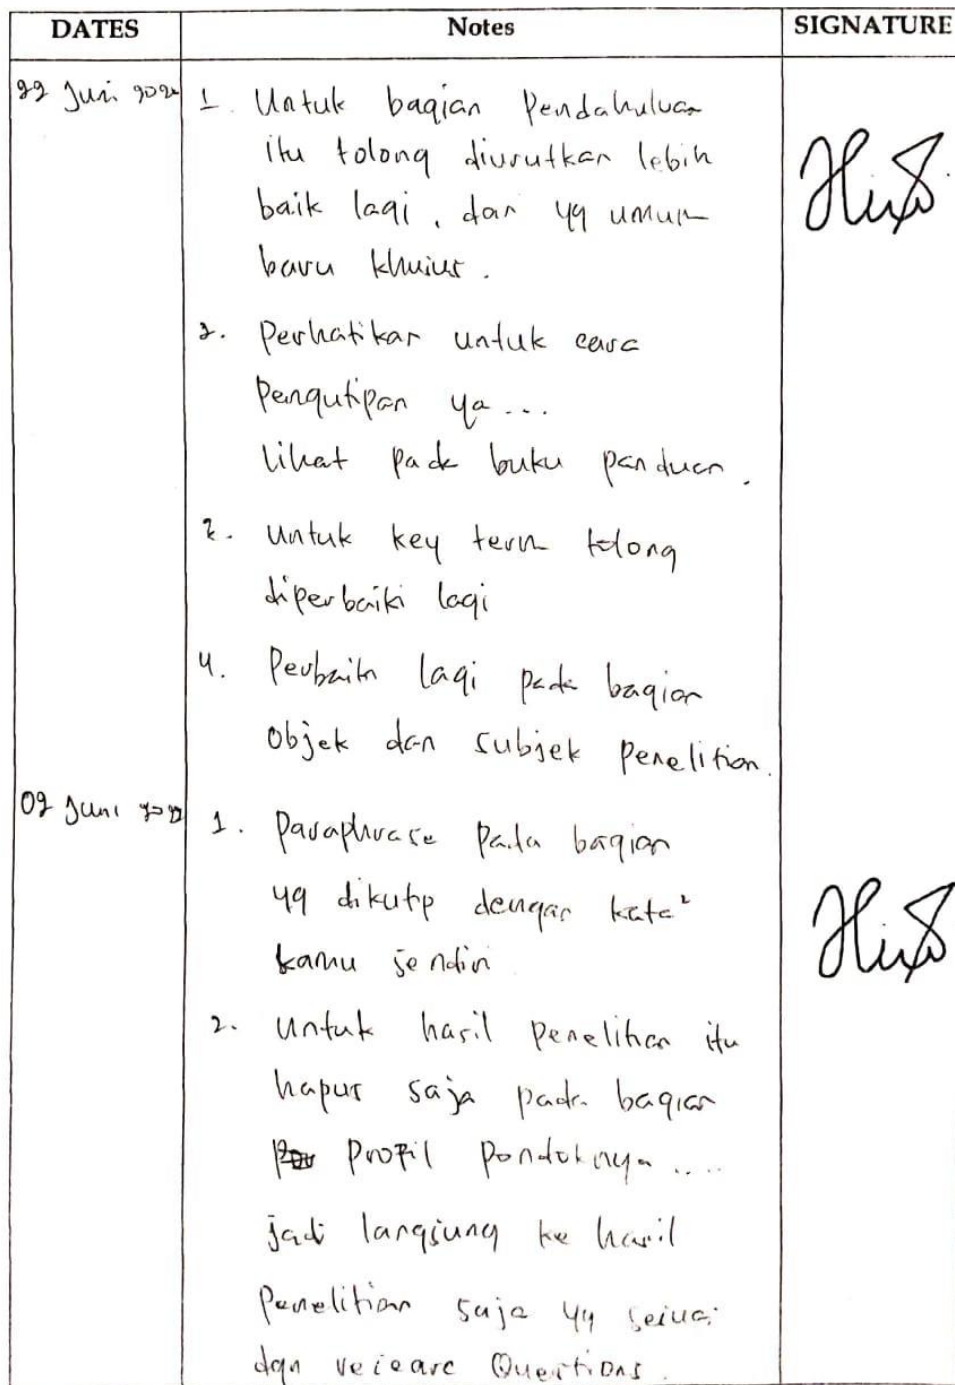 DATES Notes SIGNATURE
22 Juni 2022
1. Untuk bagian Pendahuluan
itu tolong diurutkan lebih
baik lagi, dari yg umum
baru khusus.
2. Perhatikan untuk cara
Pengutipan ya...
lihat pada buku panduan.
3. Untuk key term tolong
diperbaiki lagi
4. Perbaiki lagi pada bagian
Objek dan subjek Penelitian.
02 Juni 2022
1. Paraphrase pada bagian
yg dikutip dengan kata²
kamu sendiri
2. Untuk hasil penelitian itu
hapus saja pada bagian
Profil Pondoknya ....
jadi langsung ke hasil
Penelitian saja yg sesuai
dgn Questions.